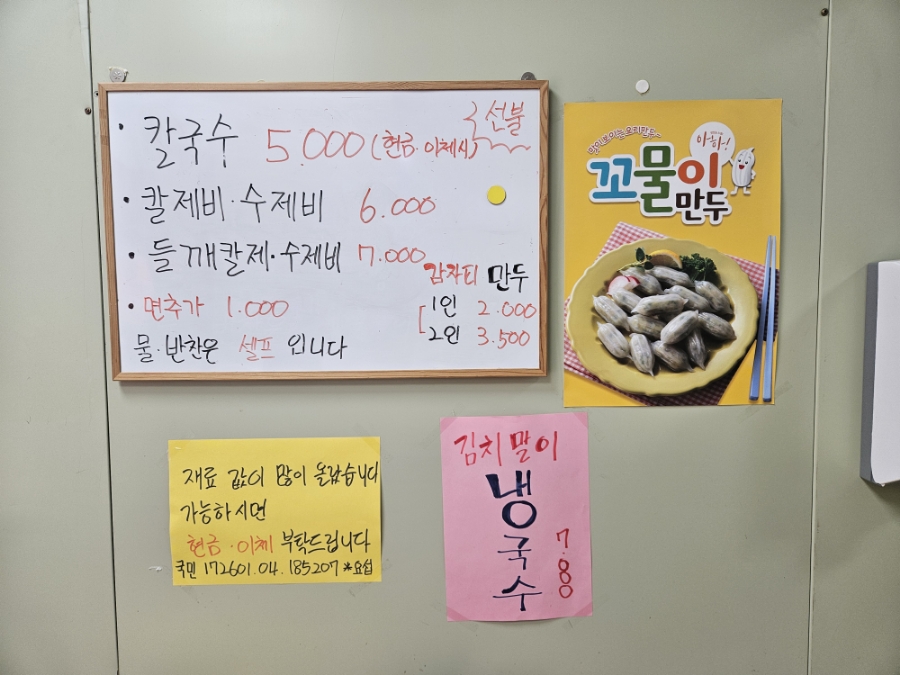 · 칼국수 5.000 (현금·이체시) 선불
· 칼제비·수제비 6.000
· 들깨칼제·수제비 7.000
· 면추가 1.000
감자티 만두
1인 2.000
2인 3.500
물·반찬은 셀프 입니다
아하!
꼬물이
만두
재료 값이 많이 올랐습니다
가능하시면
현금·이체 부탁드립니다
국민 172601.04.185207 *요섭
김치말이
냉국수
7.80